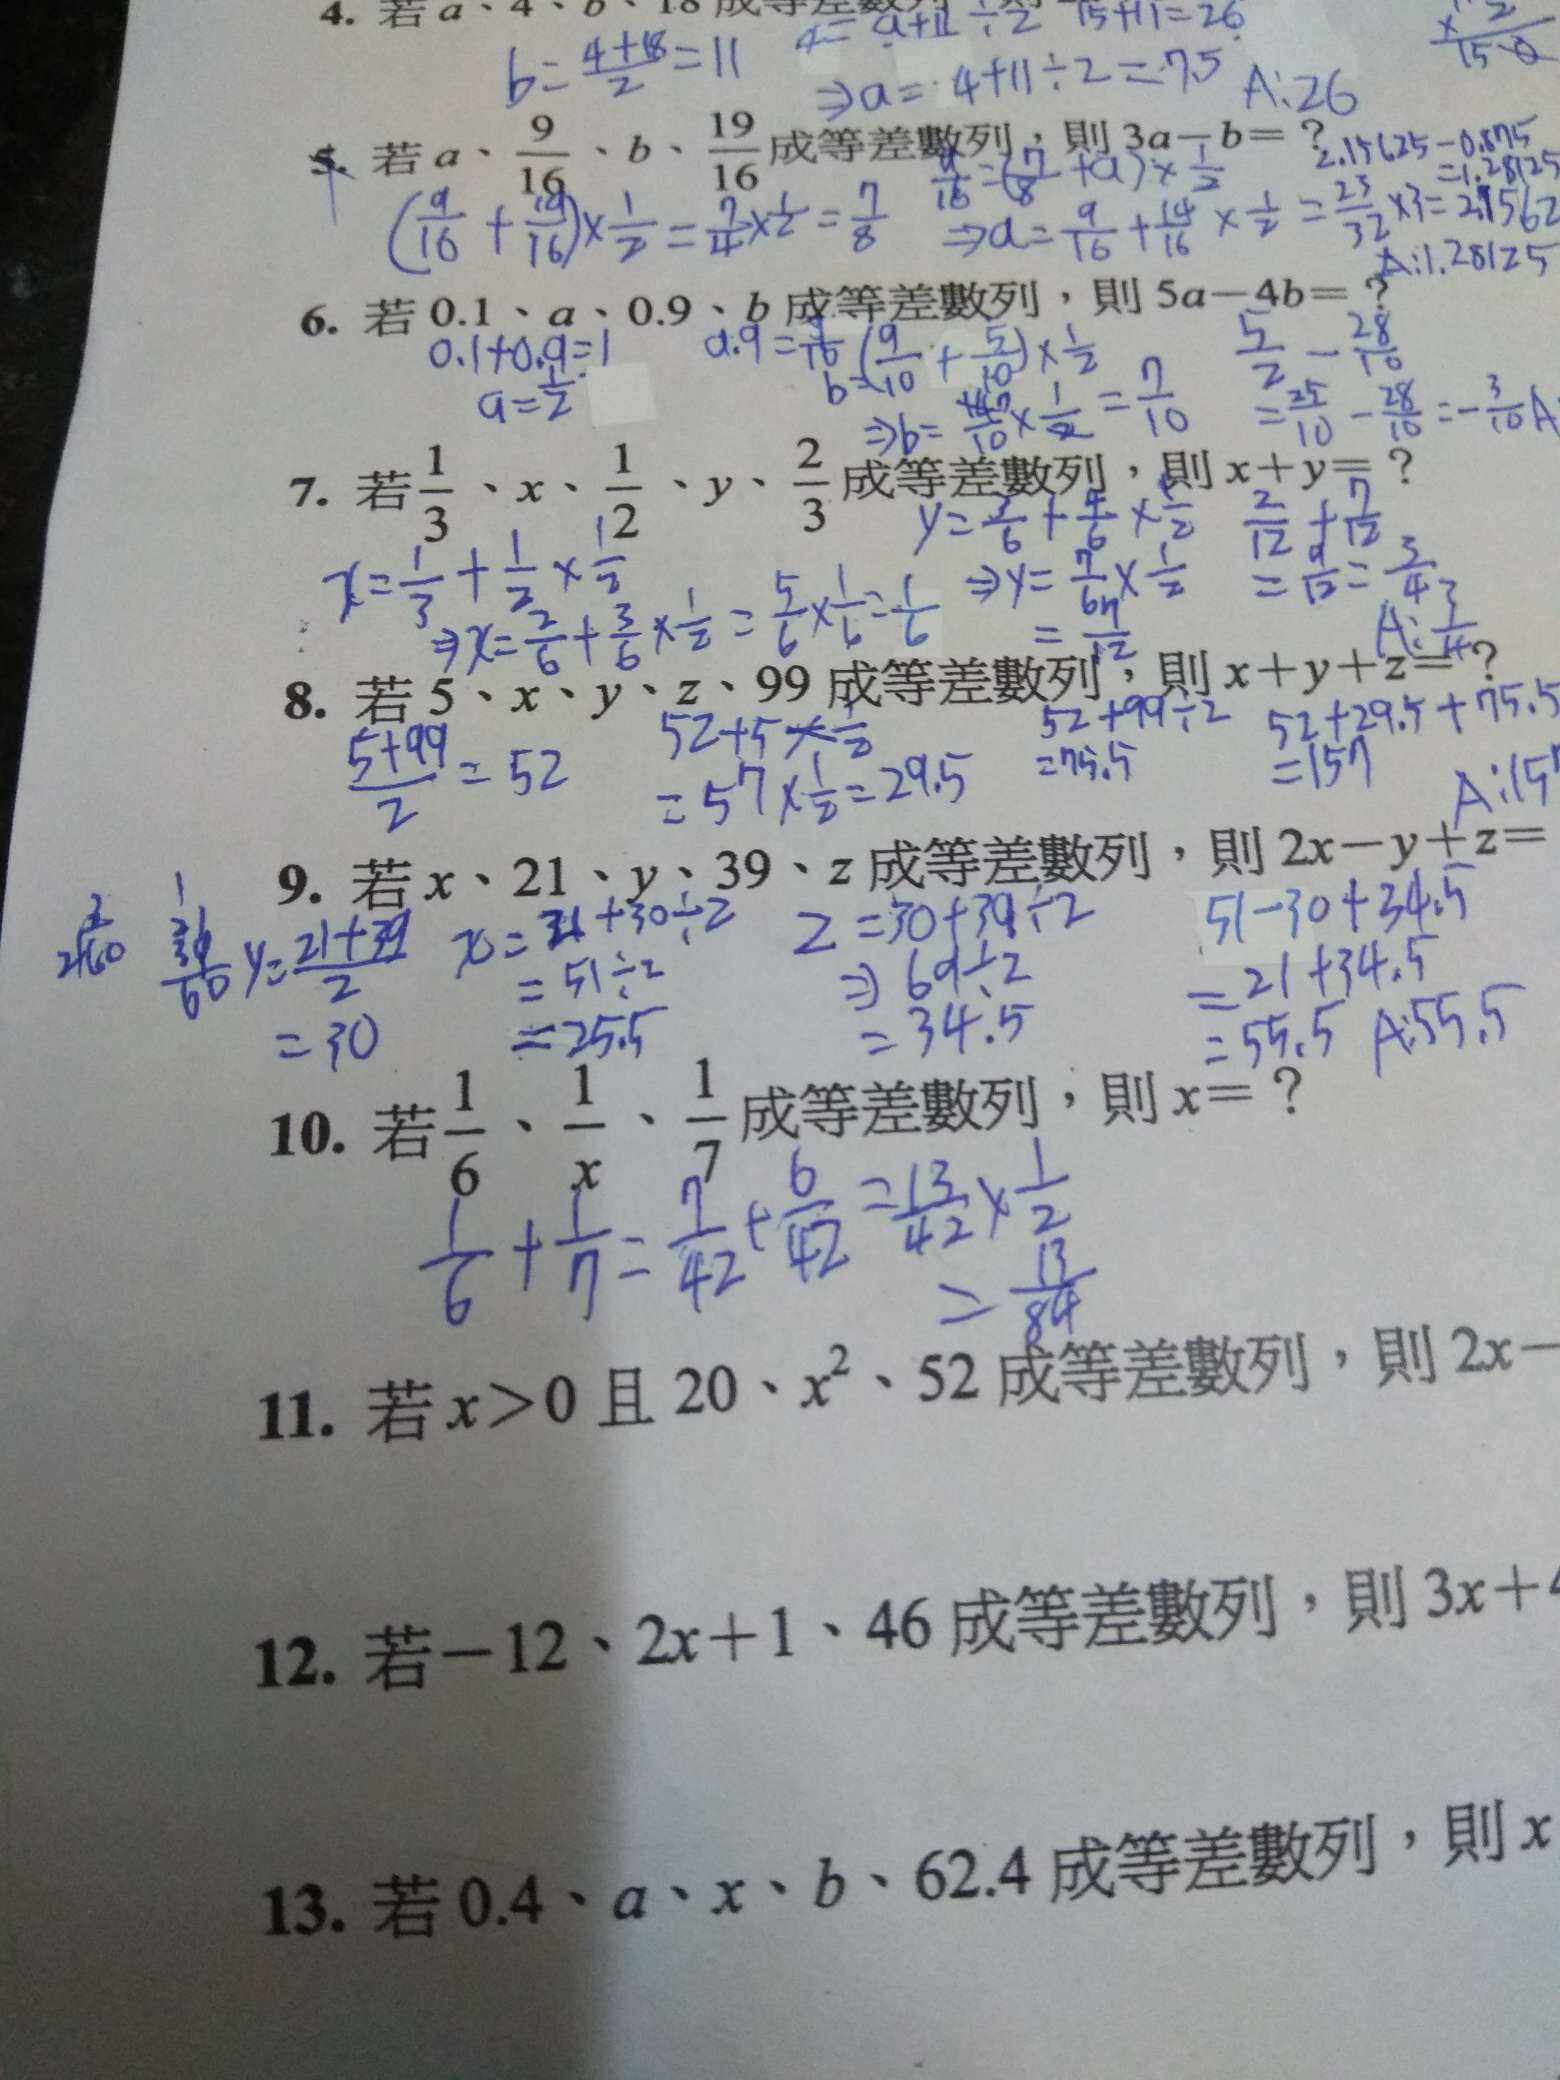 4. 若 a、4、b、18 成等差數列
b = 4+18/2 = 11
4 = a+11 ÷ 2 15+11=26
⇒ a = 4+11÷2 = 7.5 A:26
5. 若 a、9/16、b、19/16 成等差數列，則 3a－b＝？
2.15625－0.875
=1.28125
(9/16 + 19/16)×1/2 = 7/4×1/2 = 7/8
9/16 = (7/8 + a)×1/2
⇒ a = 9/16 + 14/16 × 1/2 = 23/32 ×3 = 2.1562
A:1.28125
6. 若 0.1、a、0.9、b 成等差數列，則 5a－4b＝？
0.1+0.9=1
a = 1/2
b = (9/10 + 5/10)×1/2
⇒ b = 14/10 × 1/2 = 7/10
5/2 － 28/10
= 25/10 － 28/10 = －3/10 A:
7. 若 1/3、x、1/2、y、2/3 成等差數列，則 x＋y＝？
x = 1/3 + 1/2 × 1/2
⇒ x = 2/6 + 3/6 × 1/2 = 5/6 × 1/6 = 1/6
y = 3/6 + 4/6 × 1/2
⇒ y = 7/6 × 1/2
= 7/12
2/12 + 7/12
= 9/12 = 3/4
A: 3/4
8. 若 5、x、y、z、99 成等差數列，則 x＋y＋z＝？
5+99/2 = 52
52+5 × 1/2
= 57 × 1/2 = 29.5
52+99÷2
=75.5
52+29.5+75.5
=157
A:157
9. 若 x、21、y、39、z 成等差數列，則 2x－y＋z＝
y = 21+39/2
= 30
x = 21+30÷2
= 51÷2
= 25.5
z = 30+39÷2
⇒ 69÷2
= 34.5
51－30+34.5
= 21+34.5
= 55.5 A:55.5
10. 若 1/6、1/x、1/7 成等差數列，則 x＝？
1/6 + 1/7 = 7/42 + 6/42 = 13/42 × 1/2
= 13/84
11. 若 x＞0 且 20、x²、52 成等差數列，則 2x－
12. 若－12、2x＋1、46 成等差數列，則 3x＋4
13. 若 0.4、a、x、b、62.4 成等差數列，則 x